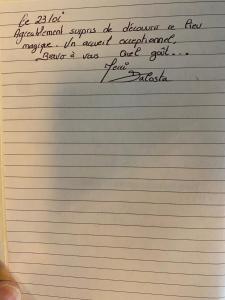 Le 23/01
Agréablement surpris de découvrir ce lieu
magique. Un accueil exceptionnel,
Bravo à vous Quel goût...
Merci
Dacosta